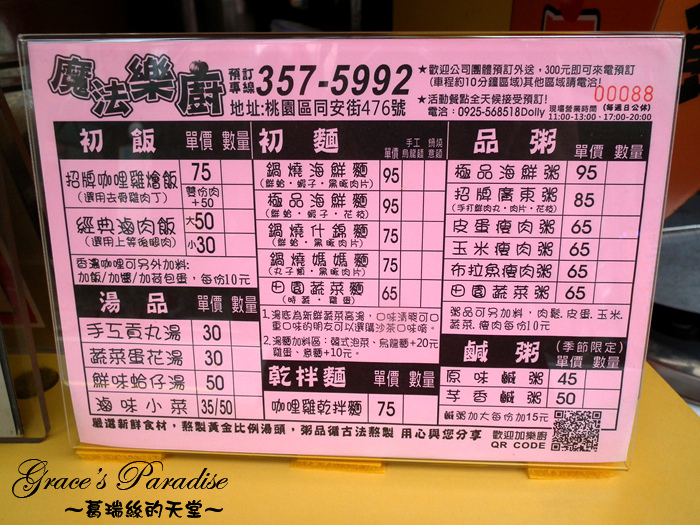 魔法樂廚
預訂專線 357-5992
地址:桃園區同安街476號
★歡迎公司團體預訂外送，300元即可來電預訂
(車程約10分鐘區域)其他區域請電洽!
★活動餐點全天候接受預訂!
電洽：0925-568518Dolly
00088
現場營業時間 (每週日公休)
11:00-13:00、17:00-20:00
初飯 單價 數量
招牌咖哩雞燴飯 75
(選用去骨雞肉丁) 雙份肉+50
經典滷肉飯 大50
(選用上等後腿肉) 小30
香濃咖哩可另外加料:
加飯/加漿/加荷包蛋，每份10元
湯品 單價 數量
手工貢丸湯 30
蔬菜蛋花湯 30
鮮味蛤仔湯 50
滷味小菜 35/50
初麵 單價 手工烏龍麵 鍋燒意麵
鍋燒海鮮麵 95
(鮮蛤、蝦子、黑豚肉片)
極品海鮮麵 95
(鮮蛤、蝦子、花枝)
鍋燒什錦麵 75
(鮮蛤、黑豚肉片)
鍋燒媽媽麵 75
(丸子類、黑豚肉片)
田園蔬菜麵 65
(時蔬、雞蛋)
1.湯底為新鮮蔬菜高湯，口味清淡可口
重口味的朋友可以選購沙茶口味唷。
2.湯麵加料區：韓式泡菜、烏龍麵+20元
雞蛋、意麵+10元。
乾拌麵 單價 數量
咖哩雞乾拌麵 75
品粥 單價 數量
極品海鮮粥 95
招牌廣東粥 85
(手打鮮肉丸、肉片、花枝)
皮蛋瘦肉粥 65
玉米瘦肉粥 65
布拉魚瘦肉粥 65
田園蔬菜粥 65
粥品可另加料，肉鬆.皮蛋.玉米.
蔬菜.瘦肉每份10元
鹹粥 (季節限定)
單價 數量
原味鹹粥 45
芋香鹹粥 50
鹹粥加大每份加15元
嚴選新鮮食材，熬製黃金比例湯頭，粥品循古法熬製 用心與您分享
歡迎加樂廚
QR CODE
Grace's Paradise
～葛瑞絲的天堂～